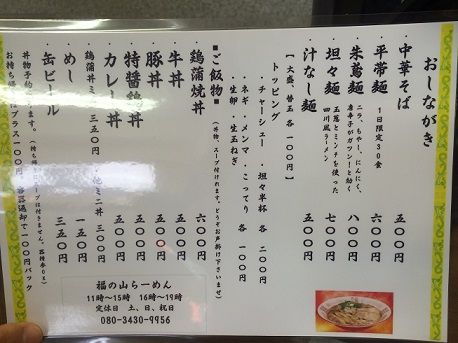 おしながき
・中華そば 五〇〇円
・平帯麺 1日限定30食 六〇〇円
・朱鳶麺 ニラ、もやし、にんにく、唐辛子がガツン!と効く 八〇〇円
・坦々麺 玉葱とミンチを使った四川風ラーメン 七〇〇円
・汁なし麺 五〇〇円
【大盛、替玉 各一〇〇円】
トッピング
・チャーシュー・坦々半杯 各二〇〇円
・ネギ・メンマ・こってり
・生卵・生玉ねぎ 各一〇〇円
■ご飯物■(丼物、スープ付けれます。どうぞお声掛け下さいませ)
・鶏蒲焼丼 六〇〇円
・牛丼 五〇〇円
・豚丼 五〇〇円
・特醤鶏丼 五〇〇円
・カレー丼 五〇〇円
・鶏蒲丼ミニ 三五〇円・他ミニ丼 三〇〇円
・めし 一五〇円
・缶ビール 三五〇円
丼物予約
お持ち帰
プラス一〇〇円
容器返却で一〇〇円バック
福の山らーめん
11時〜15時 16時〜19時
定休日 土、日、祝日
080-3430-9956